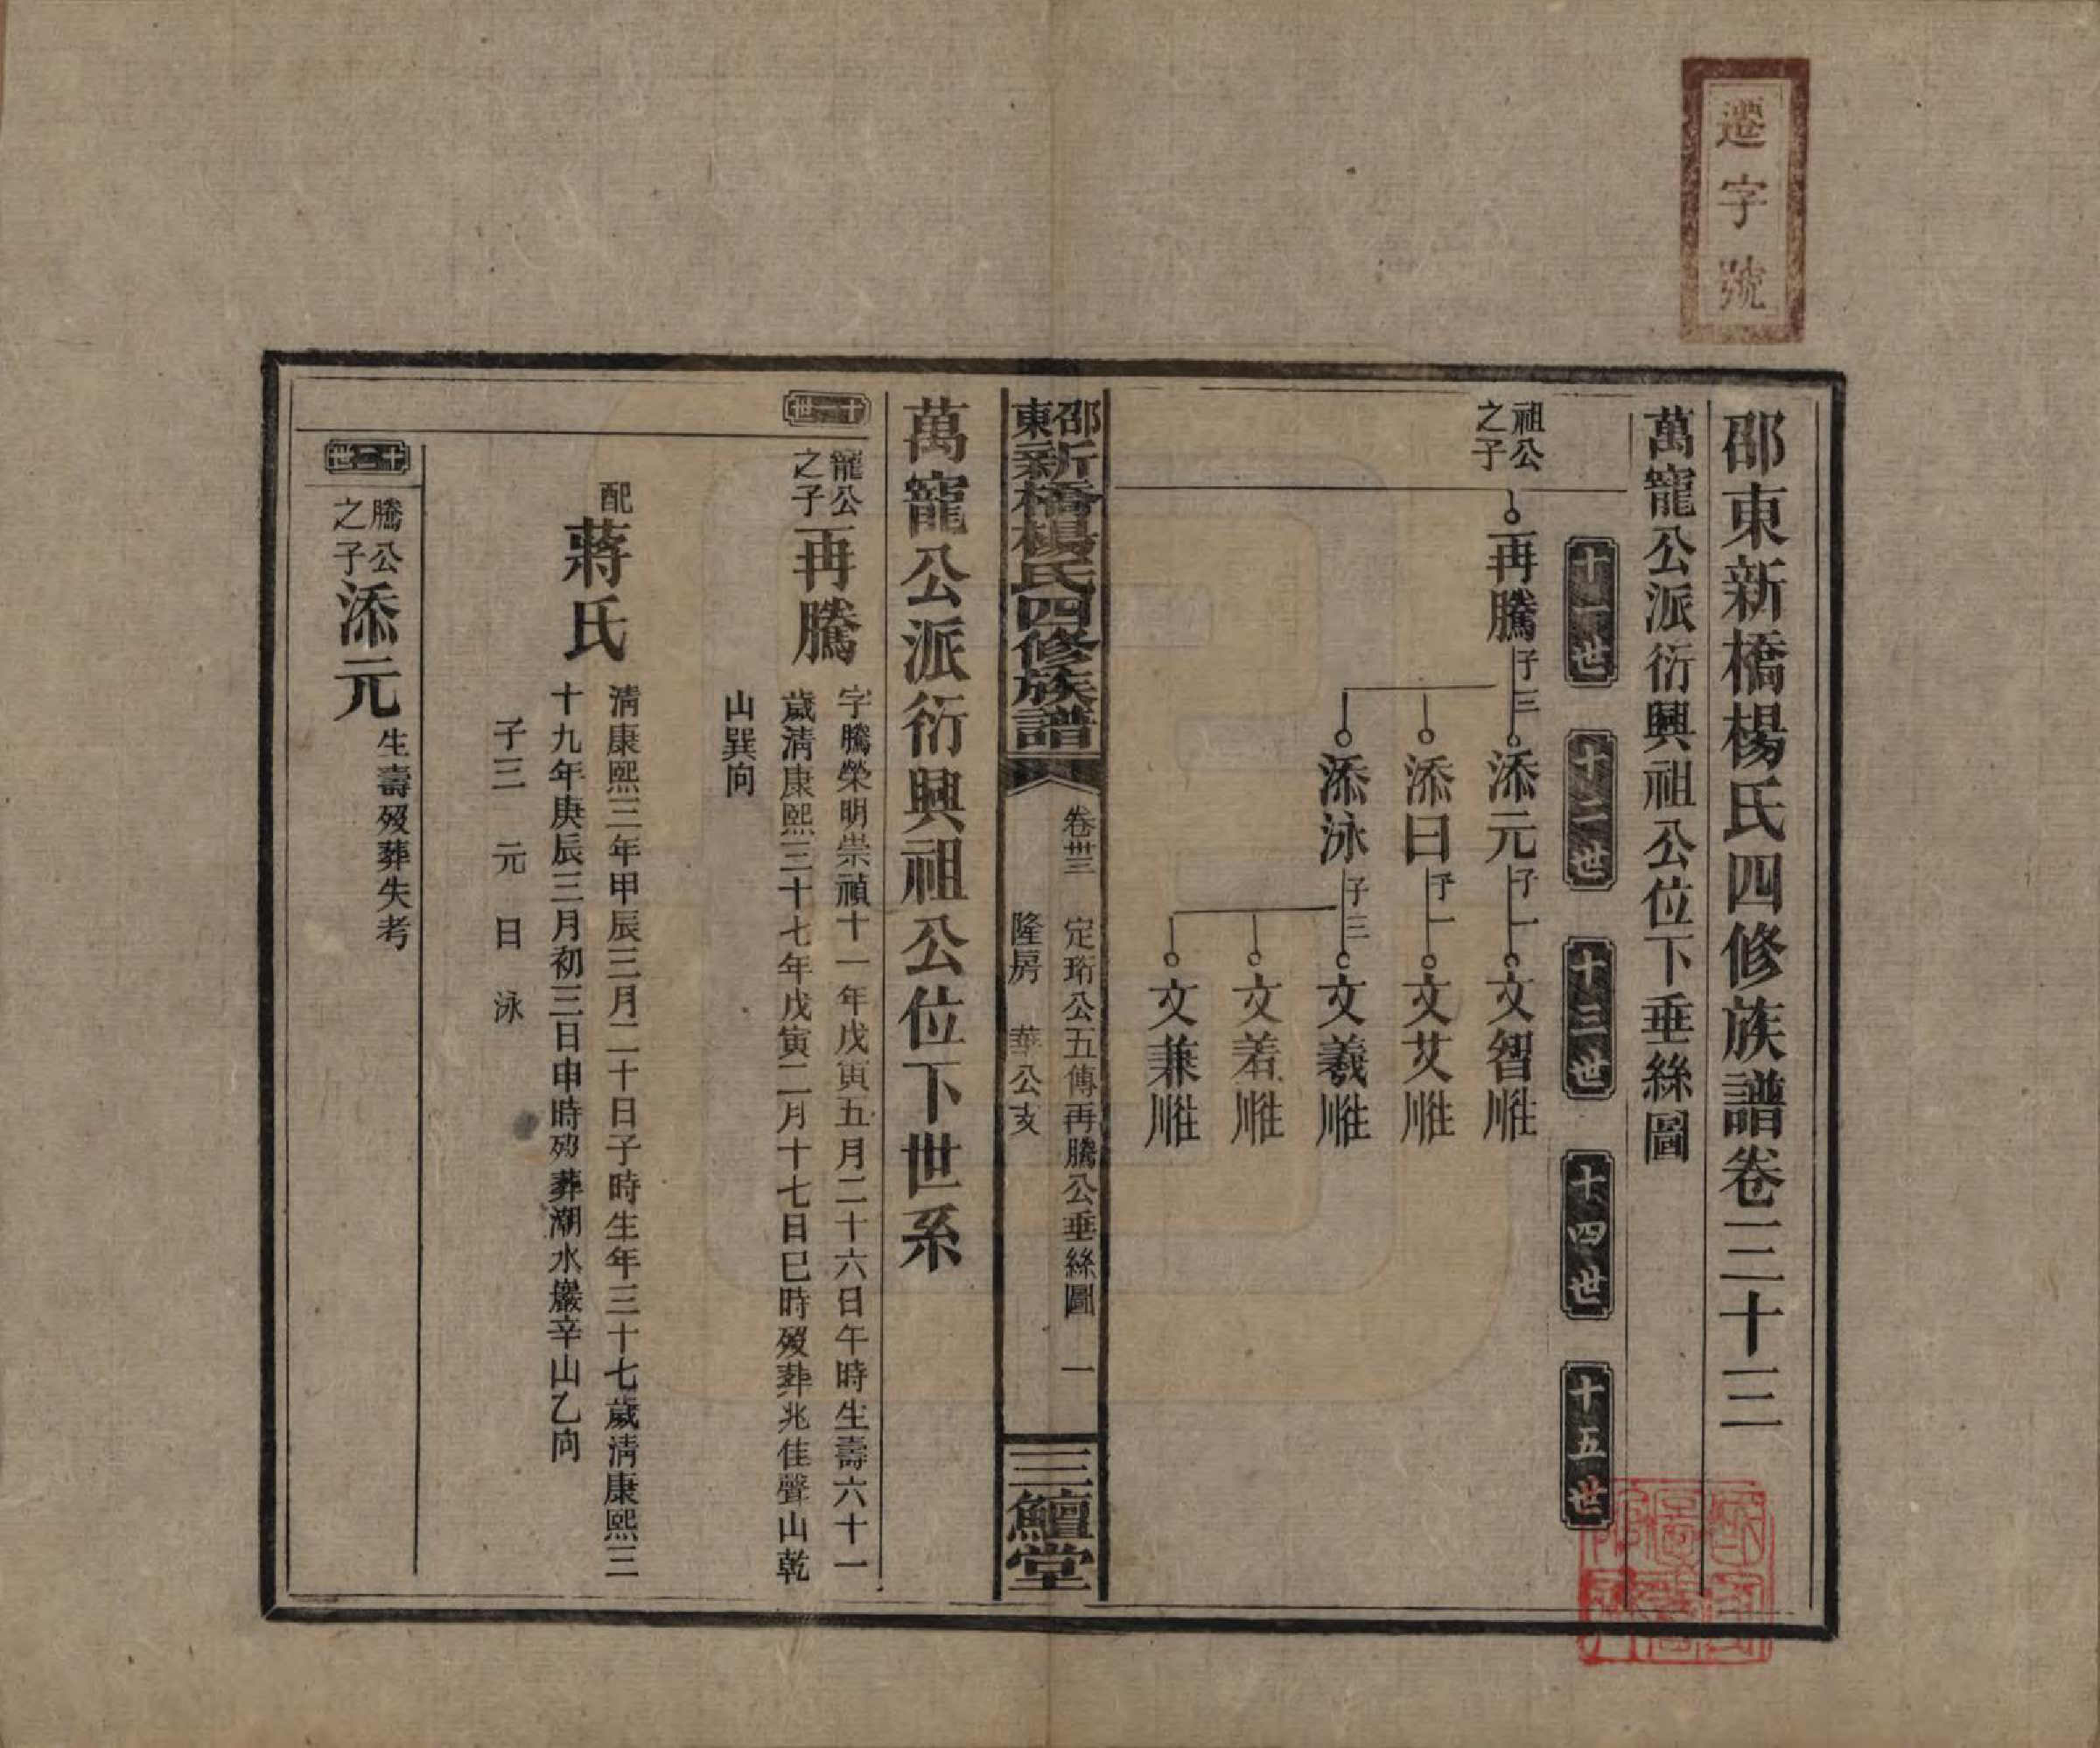 遷字號
邵東新橋楊氏四修族譜卷三十三
萬寵公派衍興祖公位下垂絲圖
十一世 十二世 十三世 十四世 十五世
祖公之子
再騰 子三 添元 子一 文智 雕
添日 子一 文艾 雕
添泳 子三 文羲 雕
文若 雕
文兼 雕
邵東新橋楊氏四修族譜
卷卅三 定珩公五傳再騰公垂絲圖 一
隆房 華公支
三鱣堂
萬寵公派衍興祖公位下世系
十一世
寵公之子 再騰 字騰榮明崇禎十一年戊寅五月二十六日午時生壽六十一
歲清康熙三十七年戊寅二月十七日巳時歿葬兆佳聲山乾
山巽向
配 蔣氏 清康熙三年甲辰三月二十日子時生年三十七歲清康熙三
十九年庚辰三月初三日申時歿葬潮水巖辛山乙向
子三 元 日 泳
十二世
騰公之子 添元 生壽歿葬失考